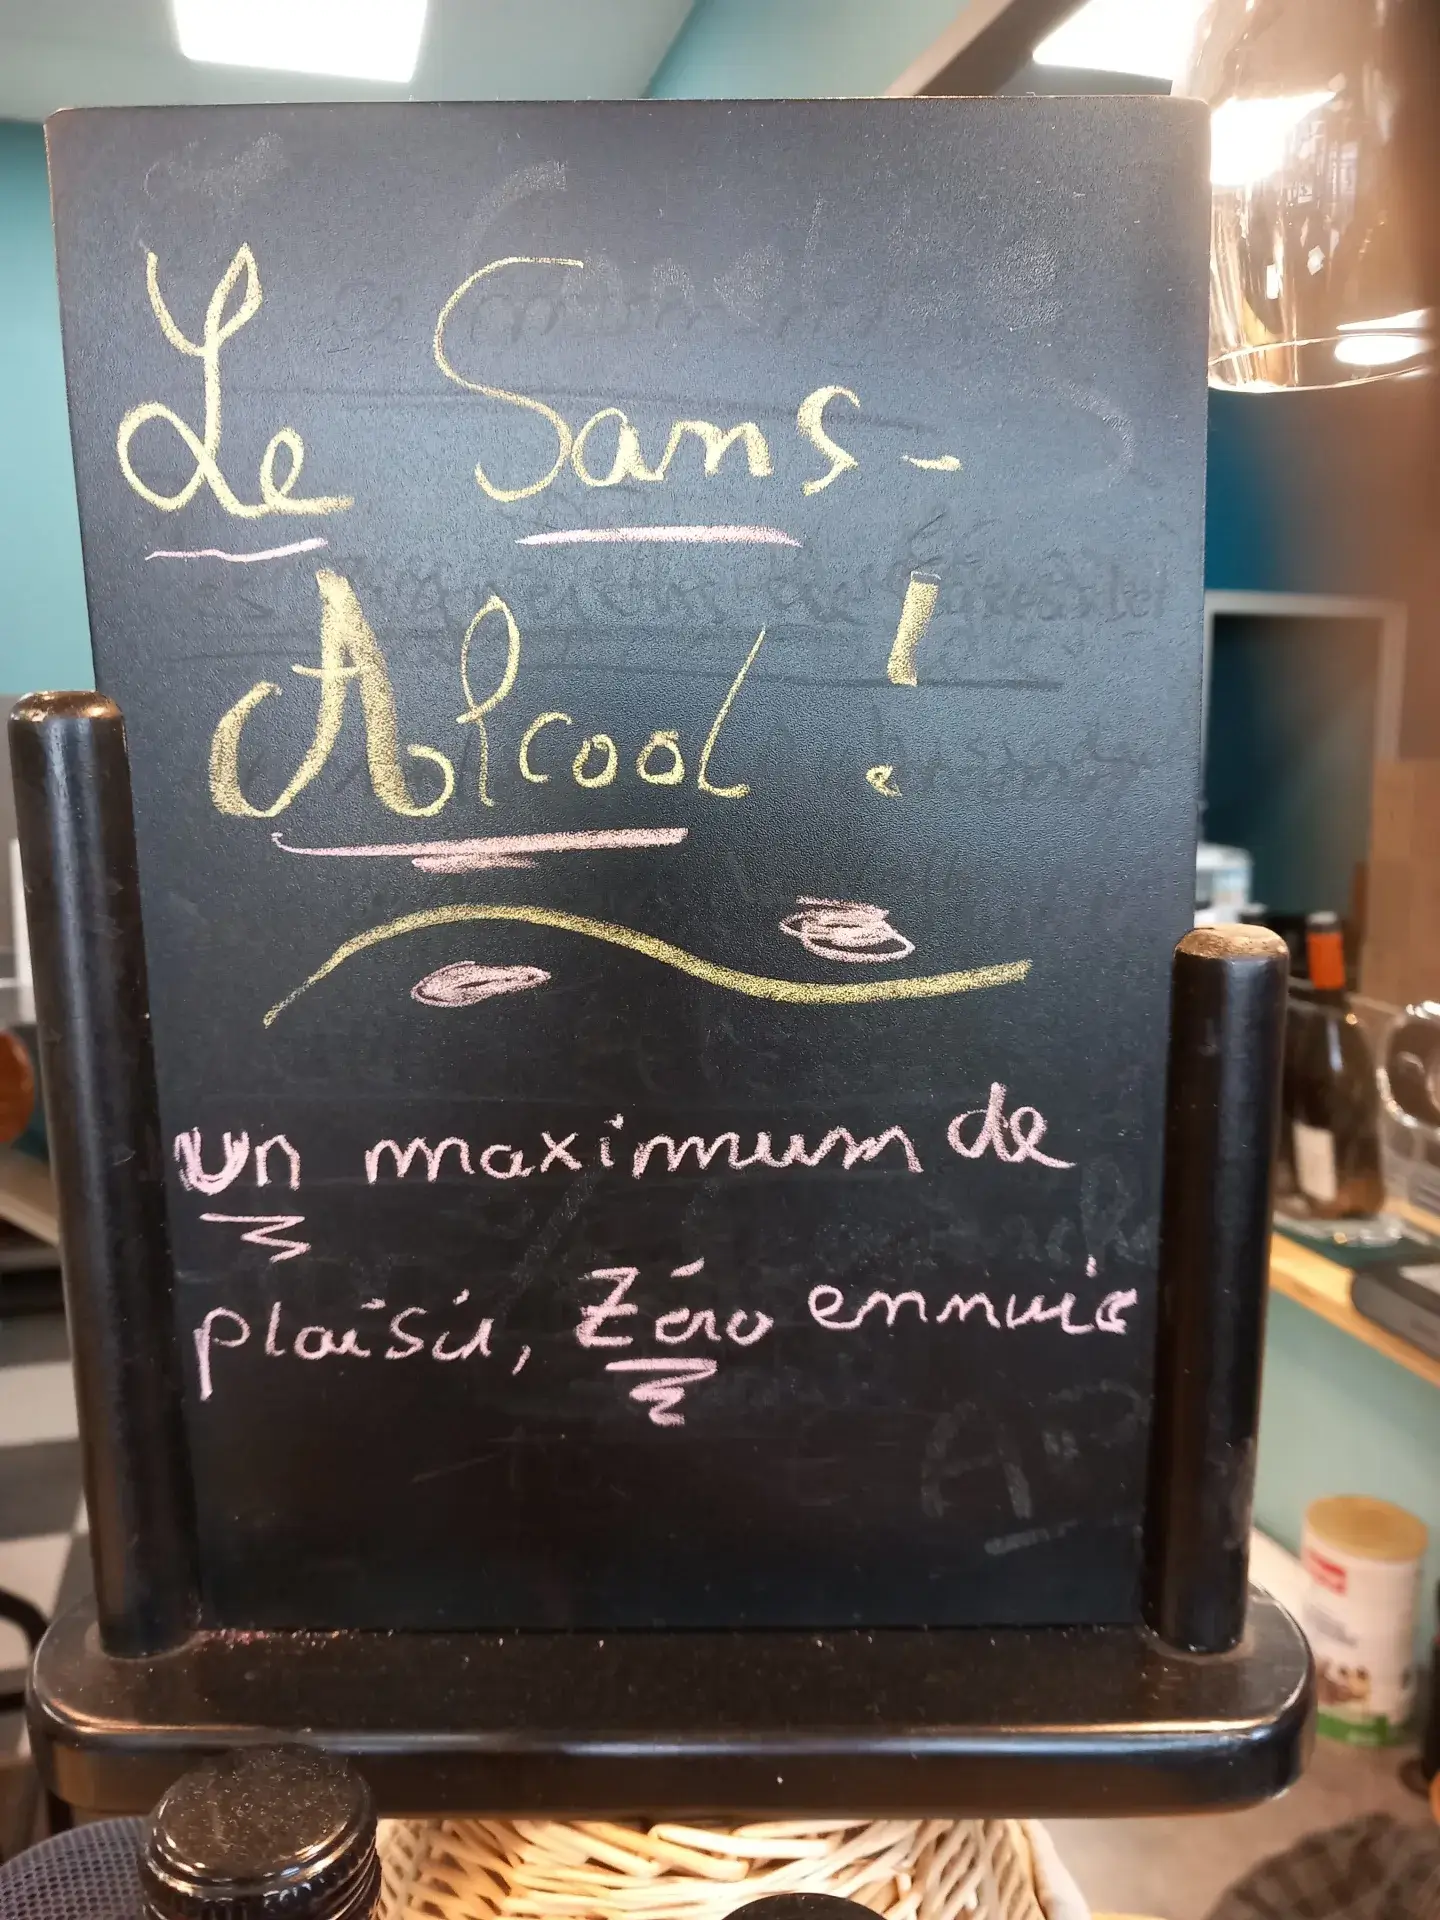 Le Sans-
Alcool !
un maximum de
plaisir, Zéro ennuis